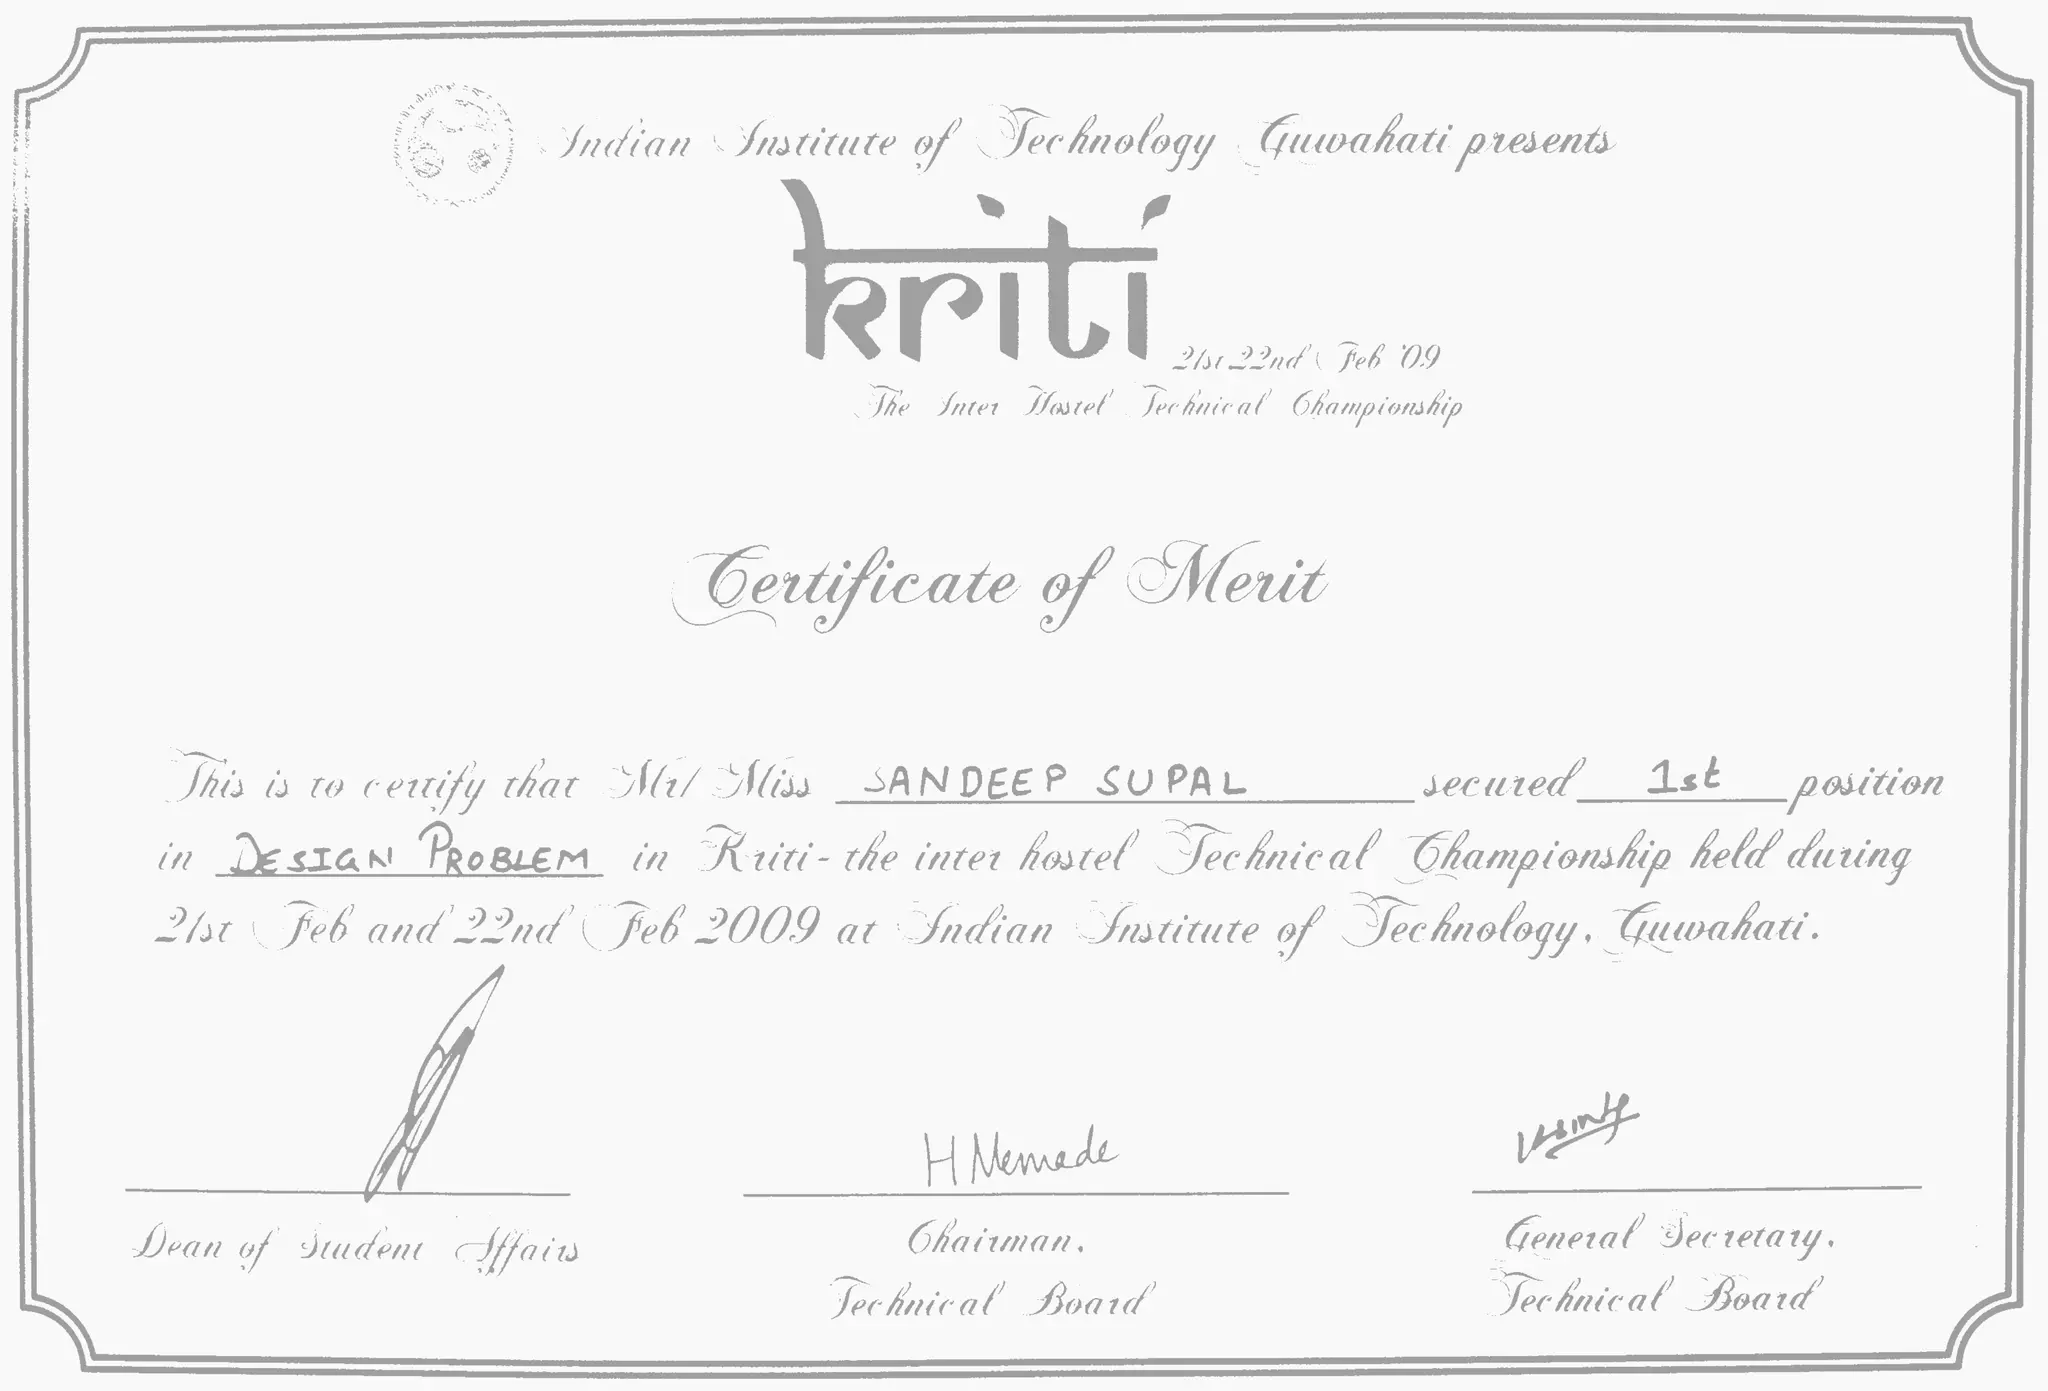 Indian Institute of Technology Guwahati presents
kriti
21st 22nd Feb '09
The Inter Hostel Technical Championship
Certificate of Merit
This is to certify that Mr/ Miss SANDEEP SUPAL secured 1st position
in DESIGN PROBLEM in Kriti - the inter hostel Technical Championship held during
21st Feb and 22nd Feb 2009 at Indian Institute of Technology, Guwahati.
H Nemade
Dean of Student Affairs
Chairman,
Technical Board
General Secretary,
Technical Board